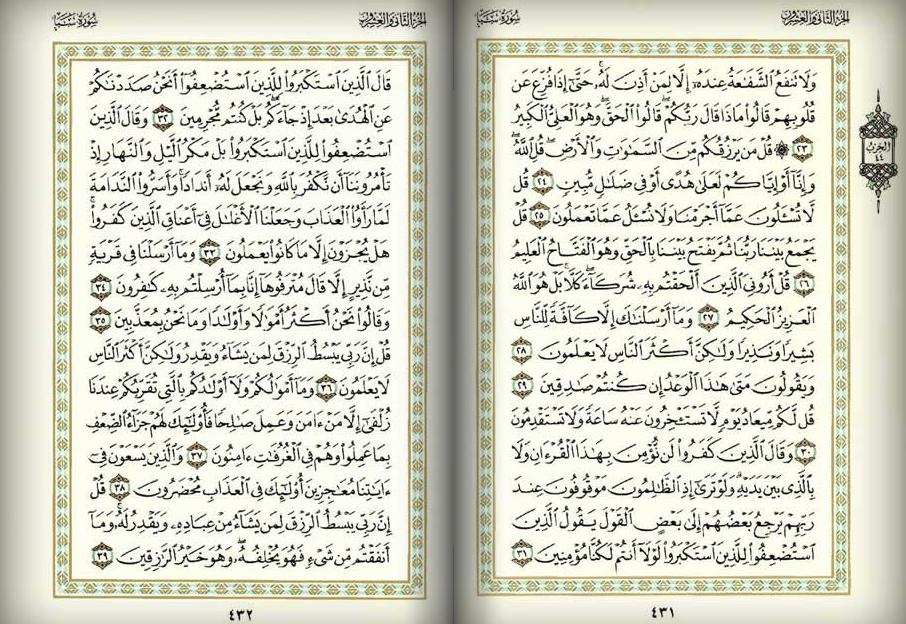 الجزء الثاني والعشرون
سورة سبأ
وَلَا تَنفَعُ الشَّفَاعَةُ عِندَهُۥٓ إِلَّا لِمَنْ أَذِنَ لَهُۥ ۚ حَتَّىٰٓ إِذَا فُزِّعَ عَن
قُلُوبِهِمْ قَالُوا۟ مَاذَا قَالَ رَبُّكُمْ ۖ قَالُوا۟ الْحَقَّ ۖ وَهُوَ الْعَلِىُّ الْكَبِيرُ
٢٣ ۞ قُلْ مَن يَرْزُقُكُم مِّنَ السَّمَٰوَٰتِ وَالْأَرْضِ ۖ قُلِ اللَّهُ ۖ
وَإِنَّآ أَوْ إِيَّاكُمْ لَعَلَىٰ هُدًى أَوْ فِى ضَلَٰلٍ مُّبِينٍ ٢٤ قُل
لَّا تُسْـَٔلُونَ عَمَّآ أَجْرَمْنَا وَلَا نُسْـَٔلُ عَمَّا تَعْمَلُونَ ٢٥ قُلْ
يَجْمَعُ بَيْنَنَا رَبُّنَا ثُمَّ يَفْتَحُ بَيْنَنَا بِالْحَقِّ وَهُوَ الْفَتَّاحُ الْعَلِيمُ
٢٦ قُلْ أَرُونِىَ الَّذِينَ أَلْحَقْتُم بِهِۦ شُرَكَآءَ ۖ كَلَّا ۚ بَلْ هُوَ اللَّهُ
الْعَزِيزُ الْحَكِيمُ ٢٧ وَمَآ أَرْسَلْنَٰكَ إِلَّا كَآفَّةً لِّلنَّاسِ
بَشِيرًا وَنَذِيرًا وَلَٰكِنَّ أَكْثَرَ النَّاسِ لَا يَعْلَمُونَ ٢٨
وَيَقُولُونَ مَتَىٰ هَٰذَا الْوَعْدُ إِن كُنتُمْ صَٰدِقِينَ ٢٩
قُل لَّكُم مِّيعَادُ يَوْمٍ لَّا تَسْتَـْٔخِرُونَ عَنْهُ سَاعَةً وَلَا تَسْتَقْدِمُونَ
٣٠ وَقَالَ الَّذِينَ كَفَرُوا۟ لَن نُّؤْمِنَ بِهَٰذَا الْقُرْءَانِ وَلَا
بِالَّذِى بَيْنَ يَدَيْهِ ۗ وَلَوْ تَرَىٰٓ إِذِ الظَّٰلِمُونَ مَوْقُوفُونَ عِندَ
رَبِّهِمْ يَرْجِعُ بَعْضُهُمْ إِلَىٰ بَعْضٍ الْقَوْلَ يَقُولُ الَّذِينَ
اسْتُضْعِفُوا۟ لِلَّذِينَ اسْتَكْبَرُوا۟ لَوْلَآ أَنتُمْ لَكُنَّا مُؤْمِنِينَ ٣١
٤٣١
الحزب
٤٤
الجزء الثاني والعشرون
سورة سبأ
قَالَ الَّذِينَ اسْتَكْبَرُوا۟ لِلَّذِينَ اسْتُضْعِفُوٓا۟ أَنَحْنُ صَدَدْنَٰكُمْ
عَنِ الْهُدَىٰ بَعْدَ إِذْ جَآءَكُم ۖ بَلْ كُنتُم مُّجْرِمِينَ ٣٢ وَقَالَ الَّذِينَ
اسْتُضْعِفُوا۟ لِلَّذِينَ اسْتَكْبَرُوا۟ بَلْ مَكْرُ الَّيْلِ وَالنَّهَارِ إِذْ
تَأْمُرُونَنَآ أَن نَّكْفُرَ بِاللَّهِ وَنَجْعَلَ لَهُۥٓ أَندَادًا ۚ وَأَسَرُّوا۟ النَّدَامَةَ
لَمَّا رَأَوُا۟ الْعَذَابَ وَجَعَلْنَا الْأَغْلَٰلَ فِىٓ أَعْنَاقِ الَّذِينَ كَفَرُوا۟ ۚ
هَلْ يُجْزَوْنَ إِلَّا مَا كَانُوا۟ يَعْمَلُونَ ٣٣ وَمَآ أَرْسَلْنَا فِى قَرْيَةٍ
مِّن نَّذِيرٍ إِلَّا قَالَ مُتْرَفُوهَآ إِنَّا بِمَآ أُرْسِلْتُم بِهِۦ كَٰفِرُونَ ٣٤
وَقَالُوا۟ نَحْنُ أَكْثَرُ أَمْوَٰلًا وَأَوْلَٰدًا وَمَا نَحْنُ بِمُعَذَّبِينَ ٣٥
قُلْ إِنَّ رَبِّى يَبْسُطُ الرِّزْقَ لِمَن يَشَآءُ وَيَقْدِرُ وَلَٰكِنَّ أَكْثَرَ النَّاسِ
لَا يَعْلَمُونَ ٣٦ وَمَآ أَمْوَٰلُكُمْ وَلَآ أَوْلَٰدُكُم بِالَّتِى تُقَرِّبُكُمْ عِندَنَا
زُلْفَىٰٓ إِلَّا مَنْ ءَامَنَ وَعَمِلَ صَٰلِحًا فَأُو۟لَٰٓئِكَ لَهُمْ جَزَآءُ الضِّعْفِ
بِمَا عَمِلُوا۟ وَهُمْ فِى الْغُرُفَٰتِ ءَامِنُونَ ٣٧ وَالَّذِينَ يَسْعَوْنَ فِىٓ
ءَايَٰتِنَا مُعَٰجِزِينَ أُو۟لَٰٓئِكَ فِى الْعَذَابِ مُحْضَرُونَ ٣٨ قُلْ
إِنَّ رَبِّى يَبْسُطُ الرِّزْقَ لِمَن يَشَآءُ مِنْ عِبَادِهِۦ وَيَقْدِرُ لَهُۥ ۚ وَمَآ
أَنفَقْتُم مِّن شَىْءٍ فَهُوَ يُخْلِفُهُۥ ۖ وَهُوَ خَيْرُ الرَّٰزِقِينَ ٣٩
٤٣٢